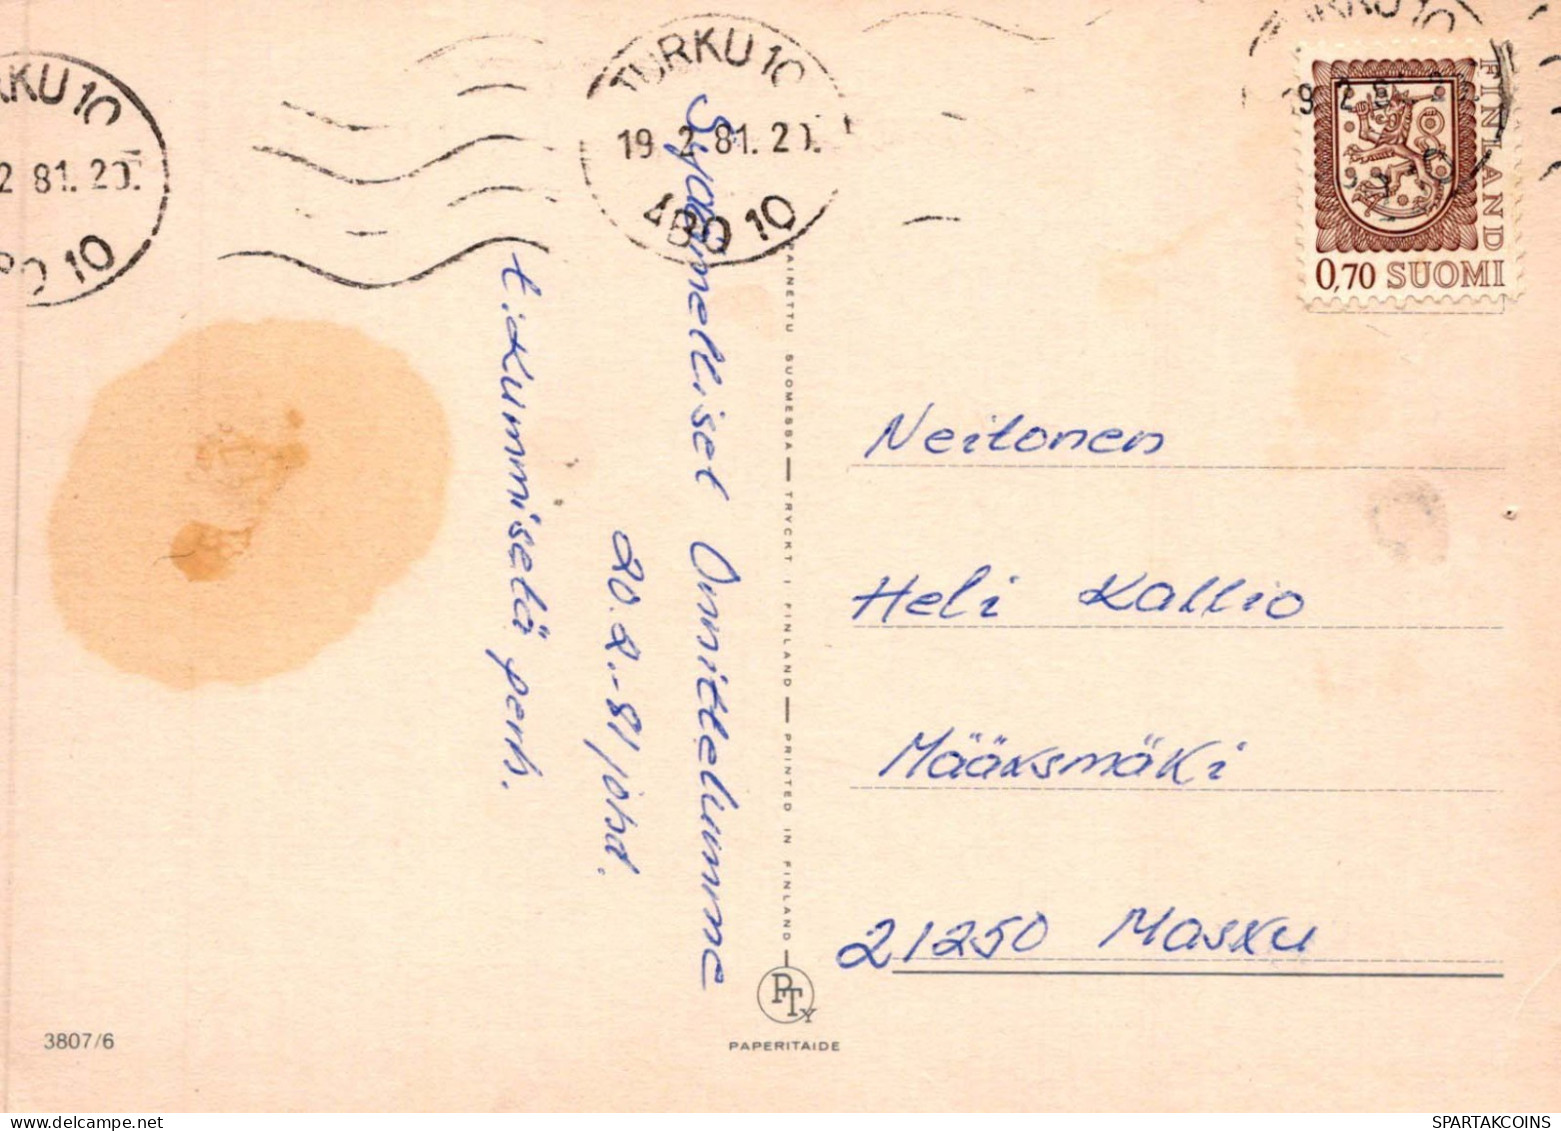 TURKU 10
19.2.81.20.
ÅBO 10
KKU 10
2 81.20.
BO 10
FINLAND
0,70 SUOMI
Sydämelliset Onnittelumme
20.2.-81
t. Kummisetä perh.
PAINETTU SUOMESSA — TRYCKT I FINLAND — PRINTED IN FINLAND
Neitonen
Heli Kallio
Määksmäki
21250 Masku
PTy
PAPERITAIDE
3807/6
SPARTAKCOINS